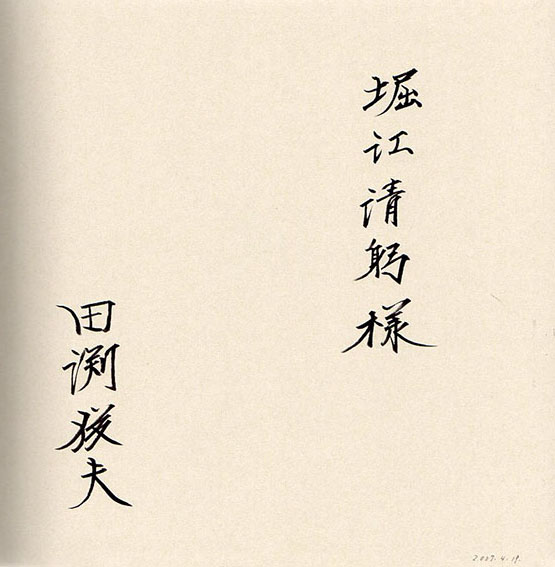 堀江清躬様
田渕俊夫
2007.4.19.